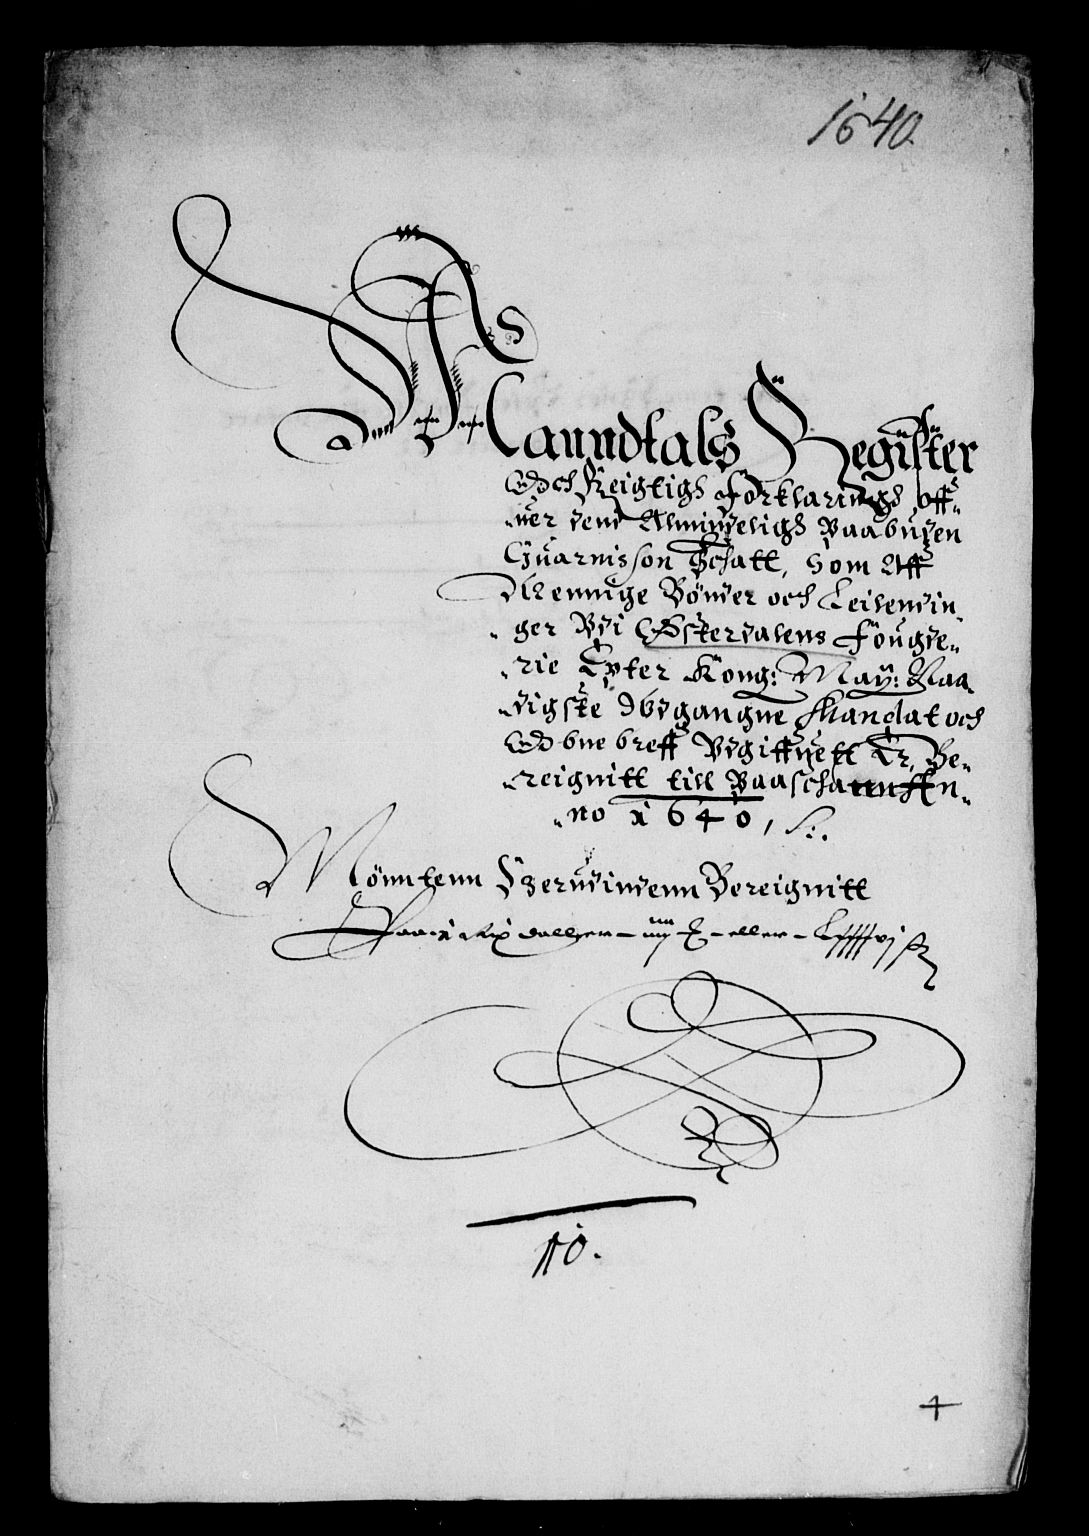 1640.
Maundtals Register
Och Reigtigh forklaringh, off„
„uer denn Almindeligh Paabuden
Guarnisson Schatt, som Aff
Menige Bønder och Leilendin„
„ger Udi Østerdalens Fougde„
„rie Epter Kong: May: Naa„
„digste Udgangne Mandat och
Obne breff Udgiffuett Er, Be„
„reignitt till Paaschann An„
„no 1640,
Mønntenn Herudindenn Bereignitt
Paa 1 Rix daller – – eller –
No.
4